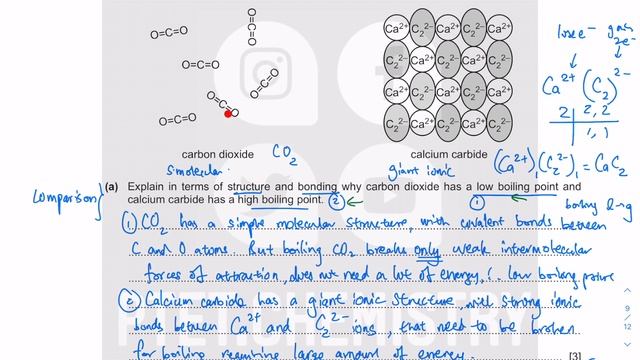 O=C=O
O=C=O
O=C=O
O=C=O
O=C=O
O=C=O
Ca²⁺ C₂²⁻ Ca²⁺ C₂²⁻ Ca²⁺
C₂²⁻ Ca²⁺ C₂²⁻ Ca²⁺ C₂²⁻
Ca²⁺ C₂²⁻ Ca²⁺ C₂²⁻ Ca²⁺
C₂²⁻ Ca²⁺ C₂²⁻ Ca²⁺ C₂²⁻
lose e⁻ gain
2e⁻
Ca²⁺ (C₂)²⁻
2 | 2, 2
1, 1
carbon dioxide CO₂ calcium carbide (Ca²⁺)₁(C₂²⁻)₁ = CaC₂
s molecular giant ionic
(a) Explain in terms of structure and bonding why carbon dioxide has a low boiling point and
comparison calcium carbide has a high boiling point. ② ← ① boiling
① CO₂ has a simple molecular structure, with covalent bonds between
C and O atoms. But boiling CO₂ breaks only weak intermolecular
forces of attraction, does not need a lot of energy, ∴ low boiling point
② Calcium carbide has a giant ionic structure, with strong ionic
bonds between Ca²⁺ and C₂²⁻ ions, that need to be broken
for boiling, requiring large amount of energy. [3]
9
12